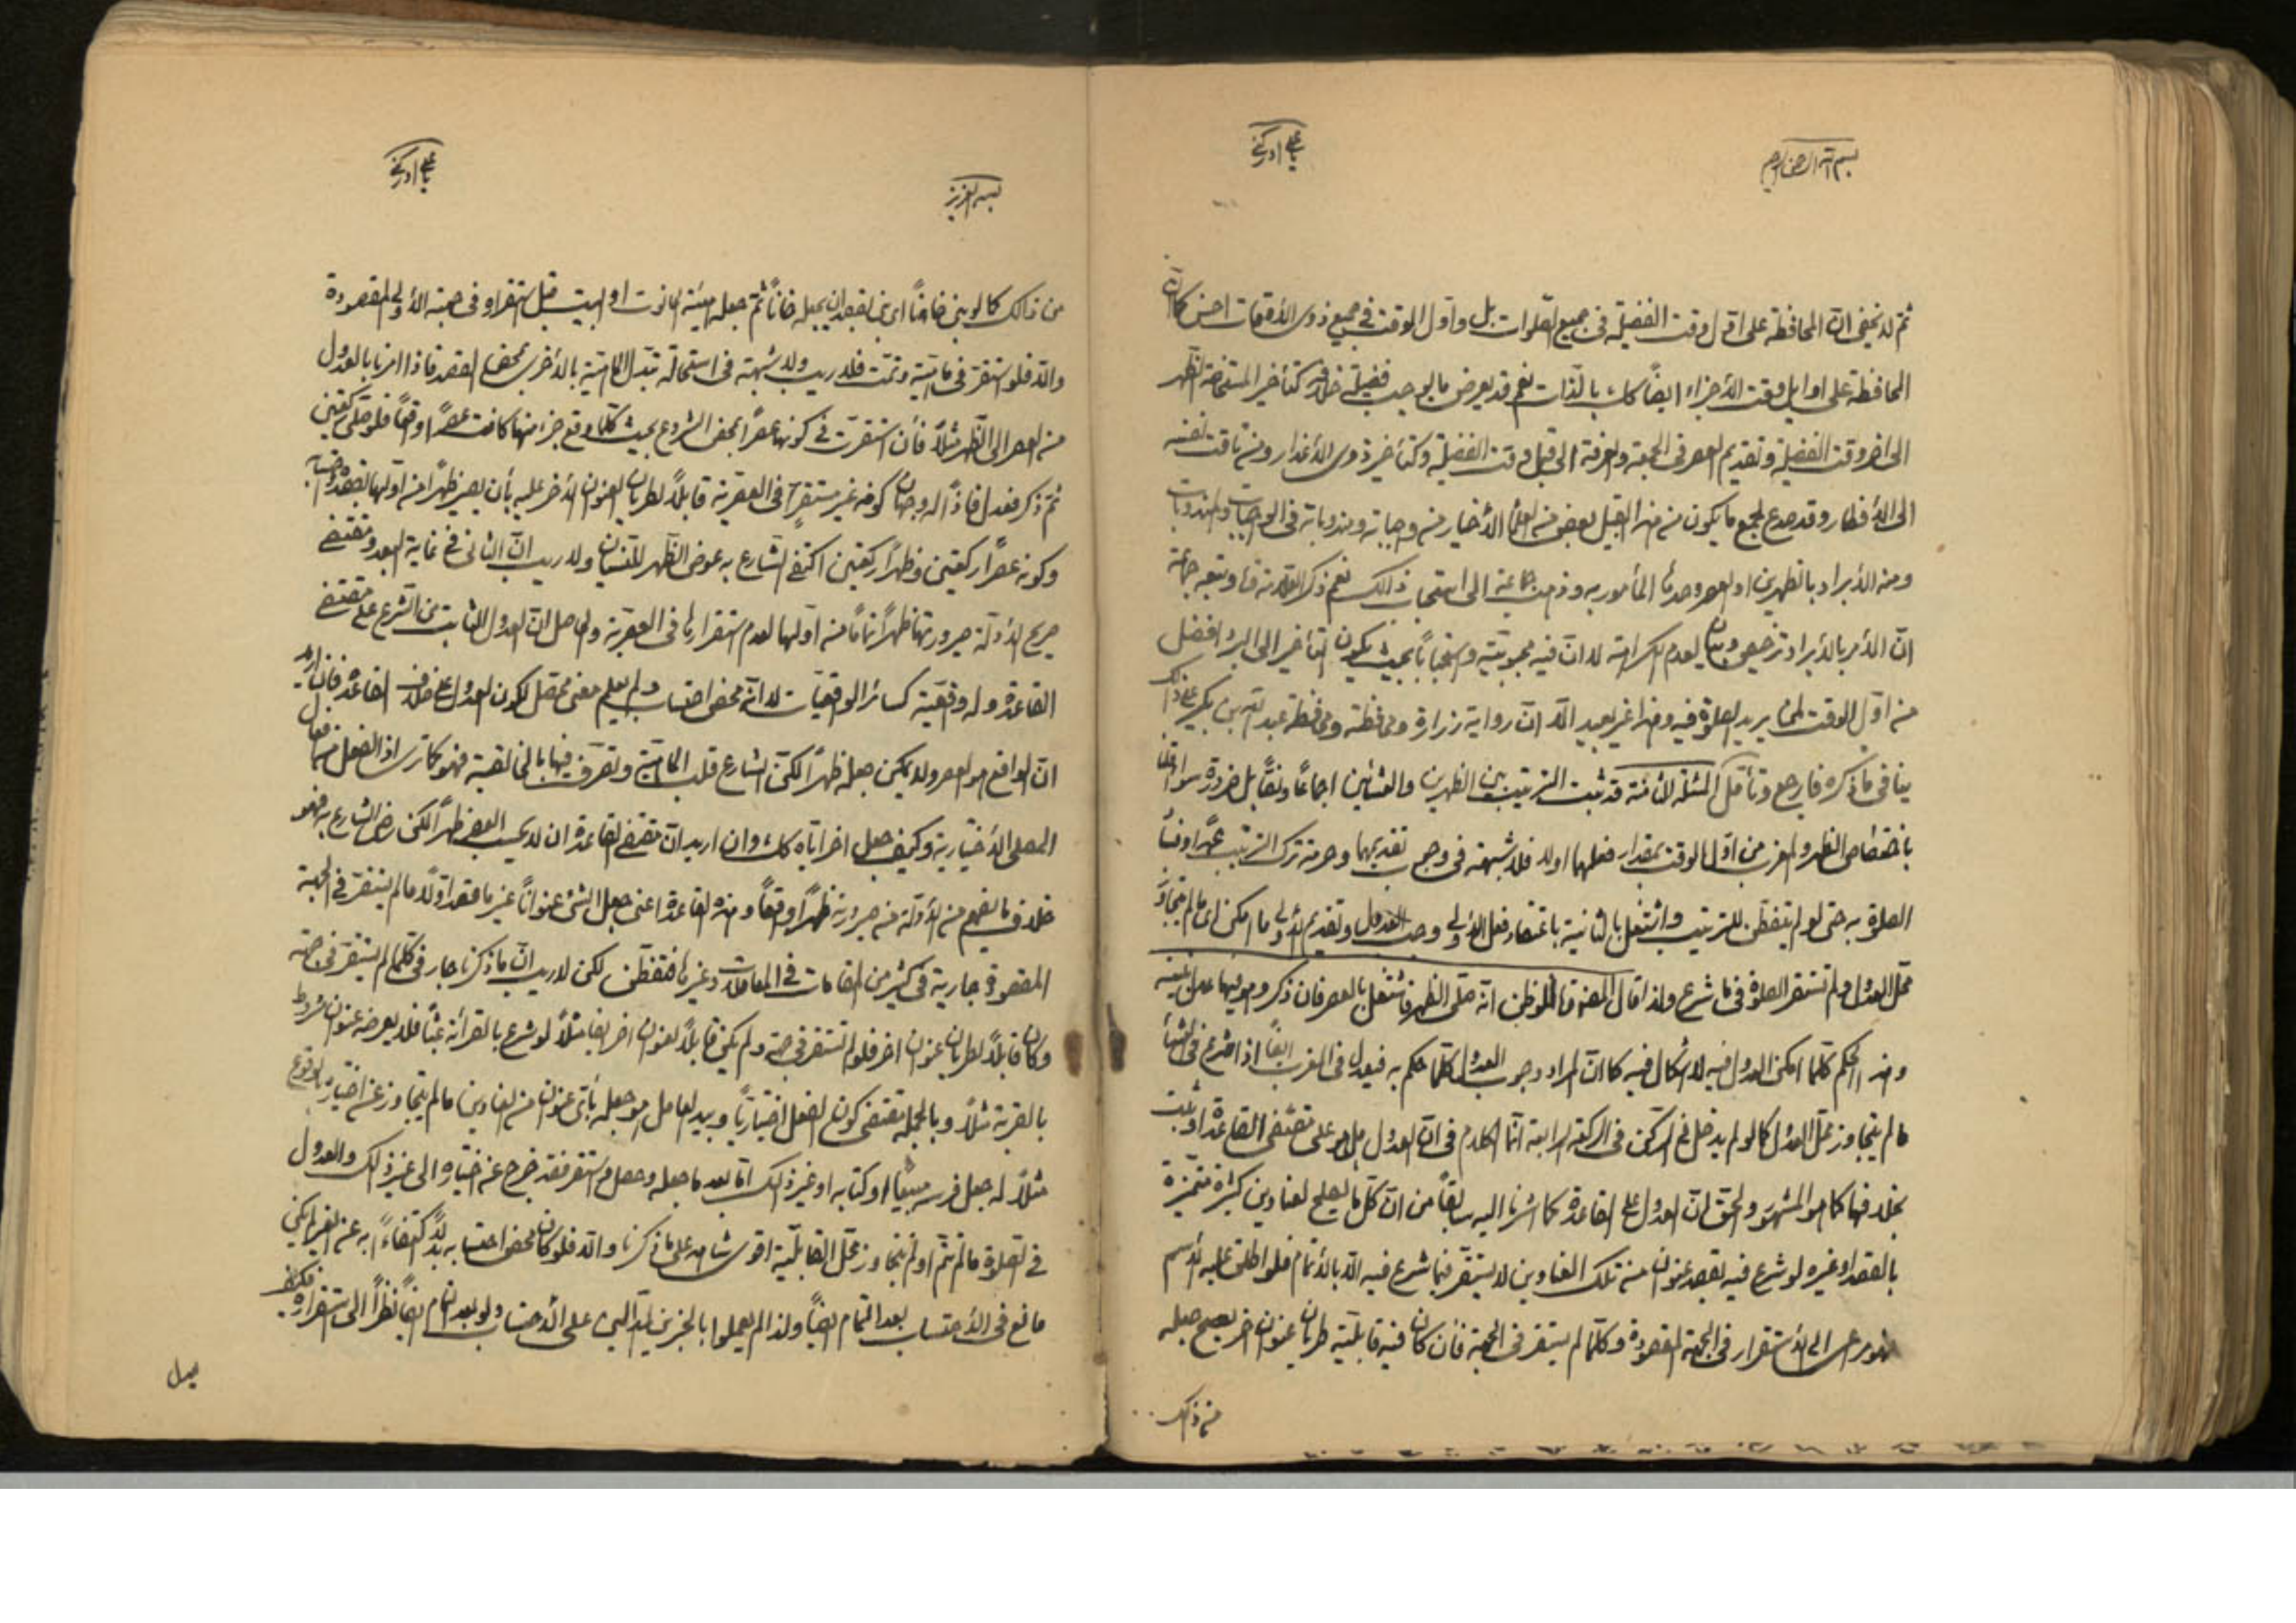 بسم الله الرحمن الرحيم
يا علي ادركني
ثم لا يخفى ان المحافظة على اول وقت الفضيلة في جميع الصلوات بل واول الوقت في جميع ذوى الأوقات احسن كما ان
المحافظة على اوايل وقت الأجزاء ايضاً كك بالذات نعم قد يعرض ما يوجب فضيلة خلافه كتأخير المستحاضة الظهر
الى اخر وقت الفضيلة وتقديم العصر في الجمعة والعرفة الى قبل وقت الفضيلة وكتأخير ذوى الأعذار ومن تاقت نفسه
الى الأفطار وقد جمع ما يكون من هذا القبيل بعض من العلماء الأخيار من وجباته ومندوباته في الواجبات والمندوبات
ومنه الأبراد بالظهرين او العصر وحدها المأمور به وذهب جماعة الى استحباب ذالك نعم ذكر العلامة وتبعه جماعة
ان الأمر بالأبراد ترخيص وبيان لعدم الكراهة لا ان فيه محبوبية واستحباباً بحيث يكون التأخير الى البرد افضل
من اول الوقت لمن يريد الصلوة فيه وهذا غير بعيد الا ان رواية زرارة ومحافظته ومحافظة عبد الله بن بكير على ذلك
ينافي ما ذكره فارجع وتأمل المسئلة الثامنة قد ثبت الترتيب بين الظهرين والعشائين اجماعاً ونصّاً بل ضرورة سواء قلنا
باختصاص الظهر والمغرب من اول الوقت بمقدار فعلهما اولا فلا شبهة في وجوب تقديمهما وحرمة ترك الترتيب عمداً وفساد
الصلوة به حتى لو لم يتفطن للترتيب واشتغل بالثانية باعتقاد فعل الأولى وجب العدول وتقديم الأولى ما امكن اى ما لم يتجاوز
محل العدول ولم تستقر الصلوة في ما شرع ولذا قال المصنف فلو ظن انه صلى الظهر فاشتغل بالعصر فان ذكر وهو فيها عدل بنيته
وهذا الحكم كلما امكن العدول فيه لا اشكال فيه كما ان المراد وجوب العدول كلما حكم به فيعدل في المغرب ايضاً اذا شرع في العشاء
ما لم يتجاوز محل العدول كما لو لم يدخل في الركن في الركعة الرابعة انما الكلام في ان العدول هل هو على مقتضى القاعدة او ثبت
بخلافها كما هو المشهور والحق ان العدول على القاعدة كما اشرنا اليه سابقاً من ان كل ما يصلح لعناوين كثيرة متميزة
بالقصد او غيره لو شرع فيه بقصد عنوان من تلك العناوين لا يستقر فيما شرع فيه الا بالأتمام فلو اطلق عليه الأسم
الى الأستقرار في الجهة المقصودة وكلما لم يستقر في الجهة فأن كان فيه قابلية طريان عنوان اخر يصح جعله
من ذالك
بسمه العزيز
يا علي ادركني
من ذالك كما لو بنى خاناً اى بنى بقصد ان يجعله خاناً ثم جعله بهيئة الحانوت او البيت قبل استقراره في جهته الأولى المقصودة
والا فلو استقر في ماهية وتمت فلا ريب ولا شبهة في استحالة تبدل الماهية بالأخرى بمحض القصد فاذا امرنا بالعدول
من العصر الى الظهر مثلاً فأن استقرت في كونها عصراً بمحض الشروع بحيث كلما وقع جزء منها كانت عصراً واقعاً فلو صلى ركعتين
ثم ذكر فعدل فاذاً له وجهان كونه غير مستقرة في العصرية قابلاً لطريان العنوان الأخر عليه بأن يصير ظهراً من اولها بقصده
وكونه عصراً ركعتين وظهراً ركعتين اكتفى الشارع به عوض الظهر للنسيان ولا ريب ان الثاني في غاية البعد ومقتضى
صريح الأدلة صيرورتها ظهراً تاماً من اولها لعدم استقرارها في العصرية والحاصل ان العدول الثابت من الشرع على مقتضى
القاعدة وله واقعية كسائر الواقعيات لا انه محض احتساب ولم يعلم معنى محصل لكون العدول على خلاف القاعدة فان اريد
ان الواقع هو العصر ولا يمكن جعله ظهراً لكن الشارع قلب الماهية وتصرف فيها بالمخالفة فهو كما ترى اذ الفعل من افعال
المصلى الأختيارية وكيف جعل اخر اياه كك وان اريد ان مقتضى القاعدة ان لا يحسب العصر ظهراً لكن رضى الشارع به فهو
خلاف ما يفهم من الأدلة من صيرورته ظهراً واقعاً وهذه القاعدة اعنى جعل الشئ عنواناً غير ما قصد اولاً ما لم يستقر في الجهة
المقصودة جارية في كثير من المقامات في المعاملات وغيرها فتفطن لكن لا ريب ان ما ذكرنا جار في كلما لم يستقر في جهته
وكان قابلاً لطريان عنوان اخر فلو لم تستقر في جهته ولم يكن قابلاً لعنوان اخر ايضا مثلاً لو شرع بالقرائة عبثاً فلا يعرضه عنوان مشروط
بالقربة مثلاً وبالجملة مقتضى كون الفعل اختيارياً وبيد العامل هو جعله بأى عنوان من العناوين ما لم يتجاوز عن اختياره بالوقوع
مثلاً له جعل فرسه مبيعاً او كتابه او غير ذالك اما بعد ما جعله وحصل واستقر فقد خرج عن اختياره الى غير ذالك والعدول
في الصلوة ما لم تتم او لم يتجاوز محل القابلية اقوى شاهد على ما ذكرنا والا فلو كان محض احتسابه بدلاً اكتفاءً به عن الغير لم يكن
مانع في الأحتساب بعد التمام ايضاً ولذا لم يعملوا بالخبرين الدالين على الأحتساب ولو بعد التمام ايضاً نظراً الى استقراره